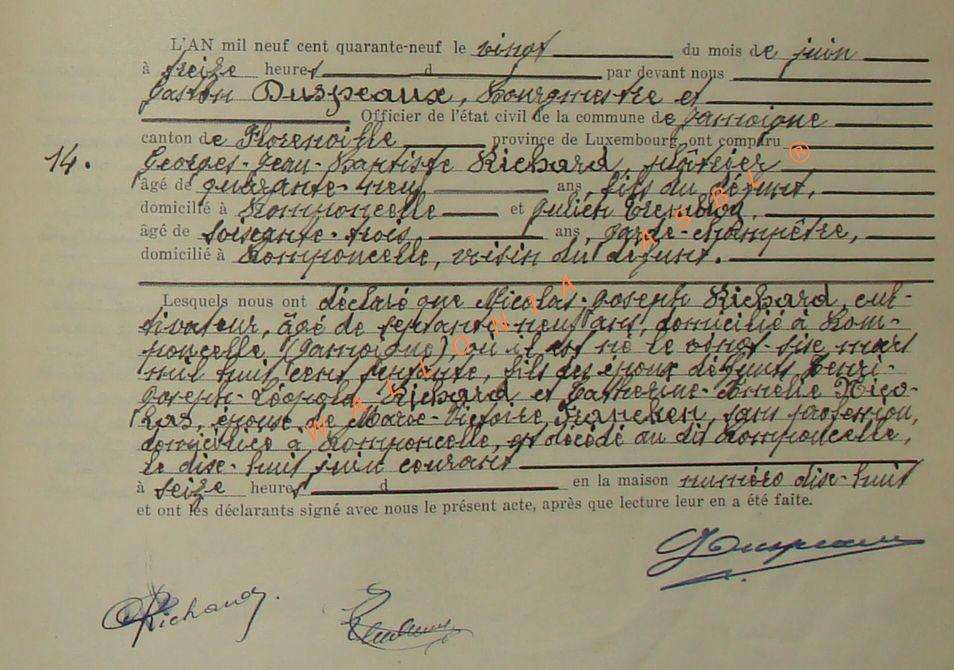 L'AN mil neuf cent quarante-neuf le vingt du mois de juin
à seize heures d par devant nous
Gaston Duspeaux, Bourgmestre et
Officier de l'état civil de la commune de Jamoigne
canton de Florenville province de Luxembourg, ont comparu
14. Georges-Jean-Baptiste Richard, plâtrier
âgé de quarante-neuf ans, fils du défunt,
domicilié à Romponcelle et Julien
âgé de soixante-trois ans, garde-champêtre,
domicilié à Romponcelle, voisin du défunt.
Lesquels nous ont déclaré que Nicolas-Joseph Richard, cul-
tivateur, âgé de septante-neuf ans, domicilié à Rom-
poncelle, (Jamoigne) où il est né le vingt-six mars
mil huit cent septante, fils des époux défunts Henri-
Joseph-Léopold Richard et Catherine-Cornélie Nico-
las, époux de Marie-Victoire, Francken, sans profession,
domiciliée à Romponcelle, est décédé au dit Romponcelle,
le dix-huit juin courant
à seize heures d en la maison numéro dix-huit
et ont les déclarants signé avec nous le présent acte, après que lecture leur en a été faite.
GDuspeaux
Richard.
WALLONIA ASBL ®